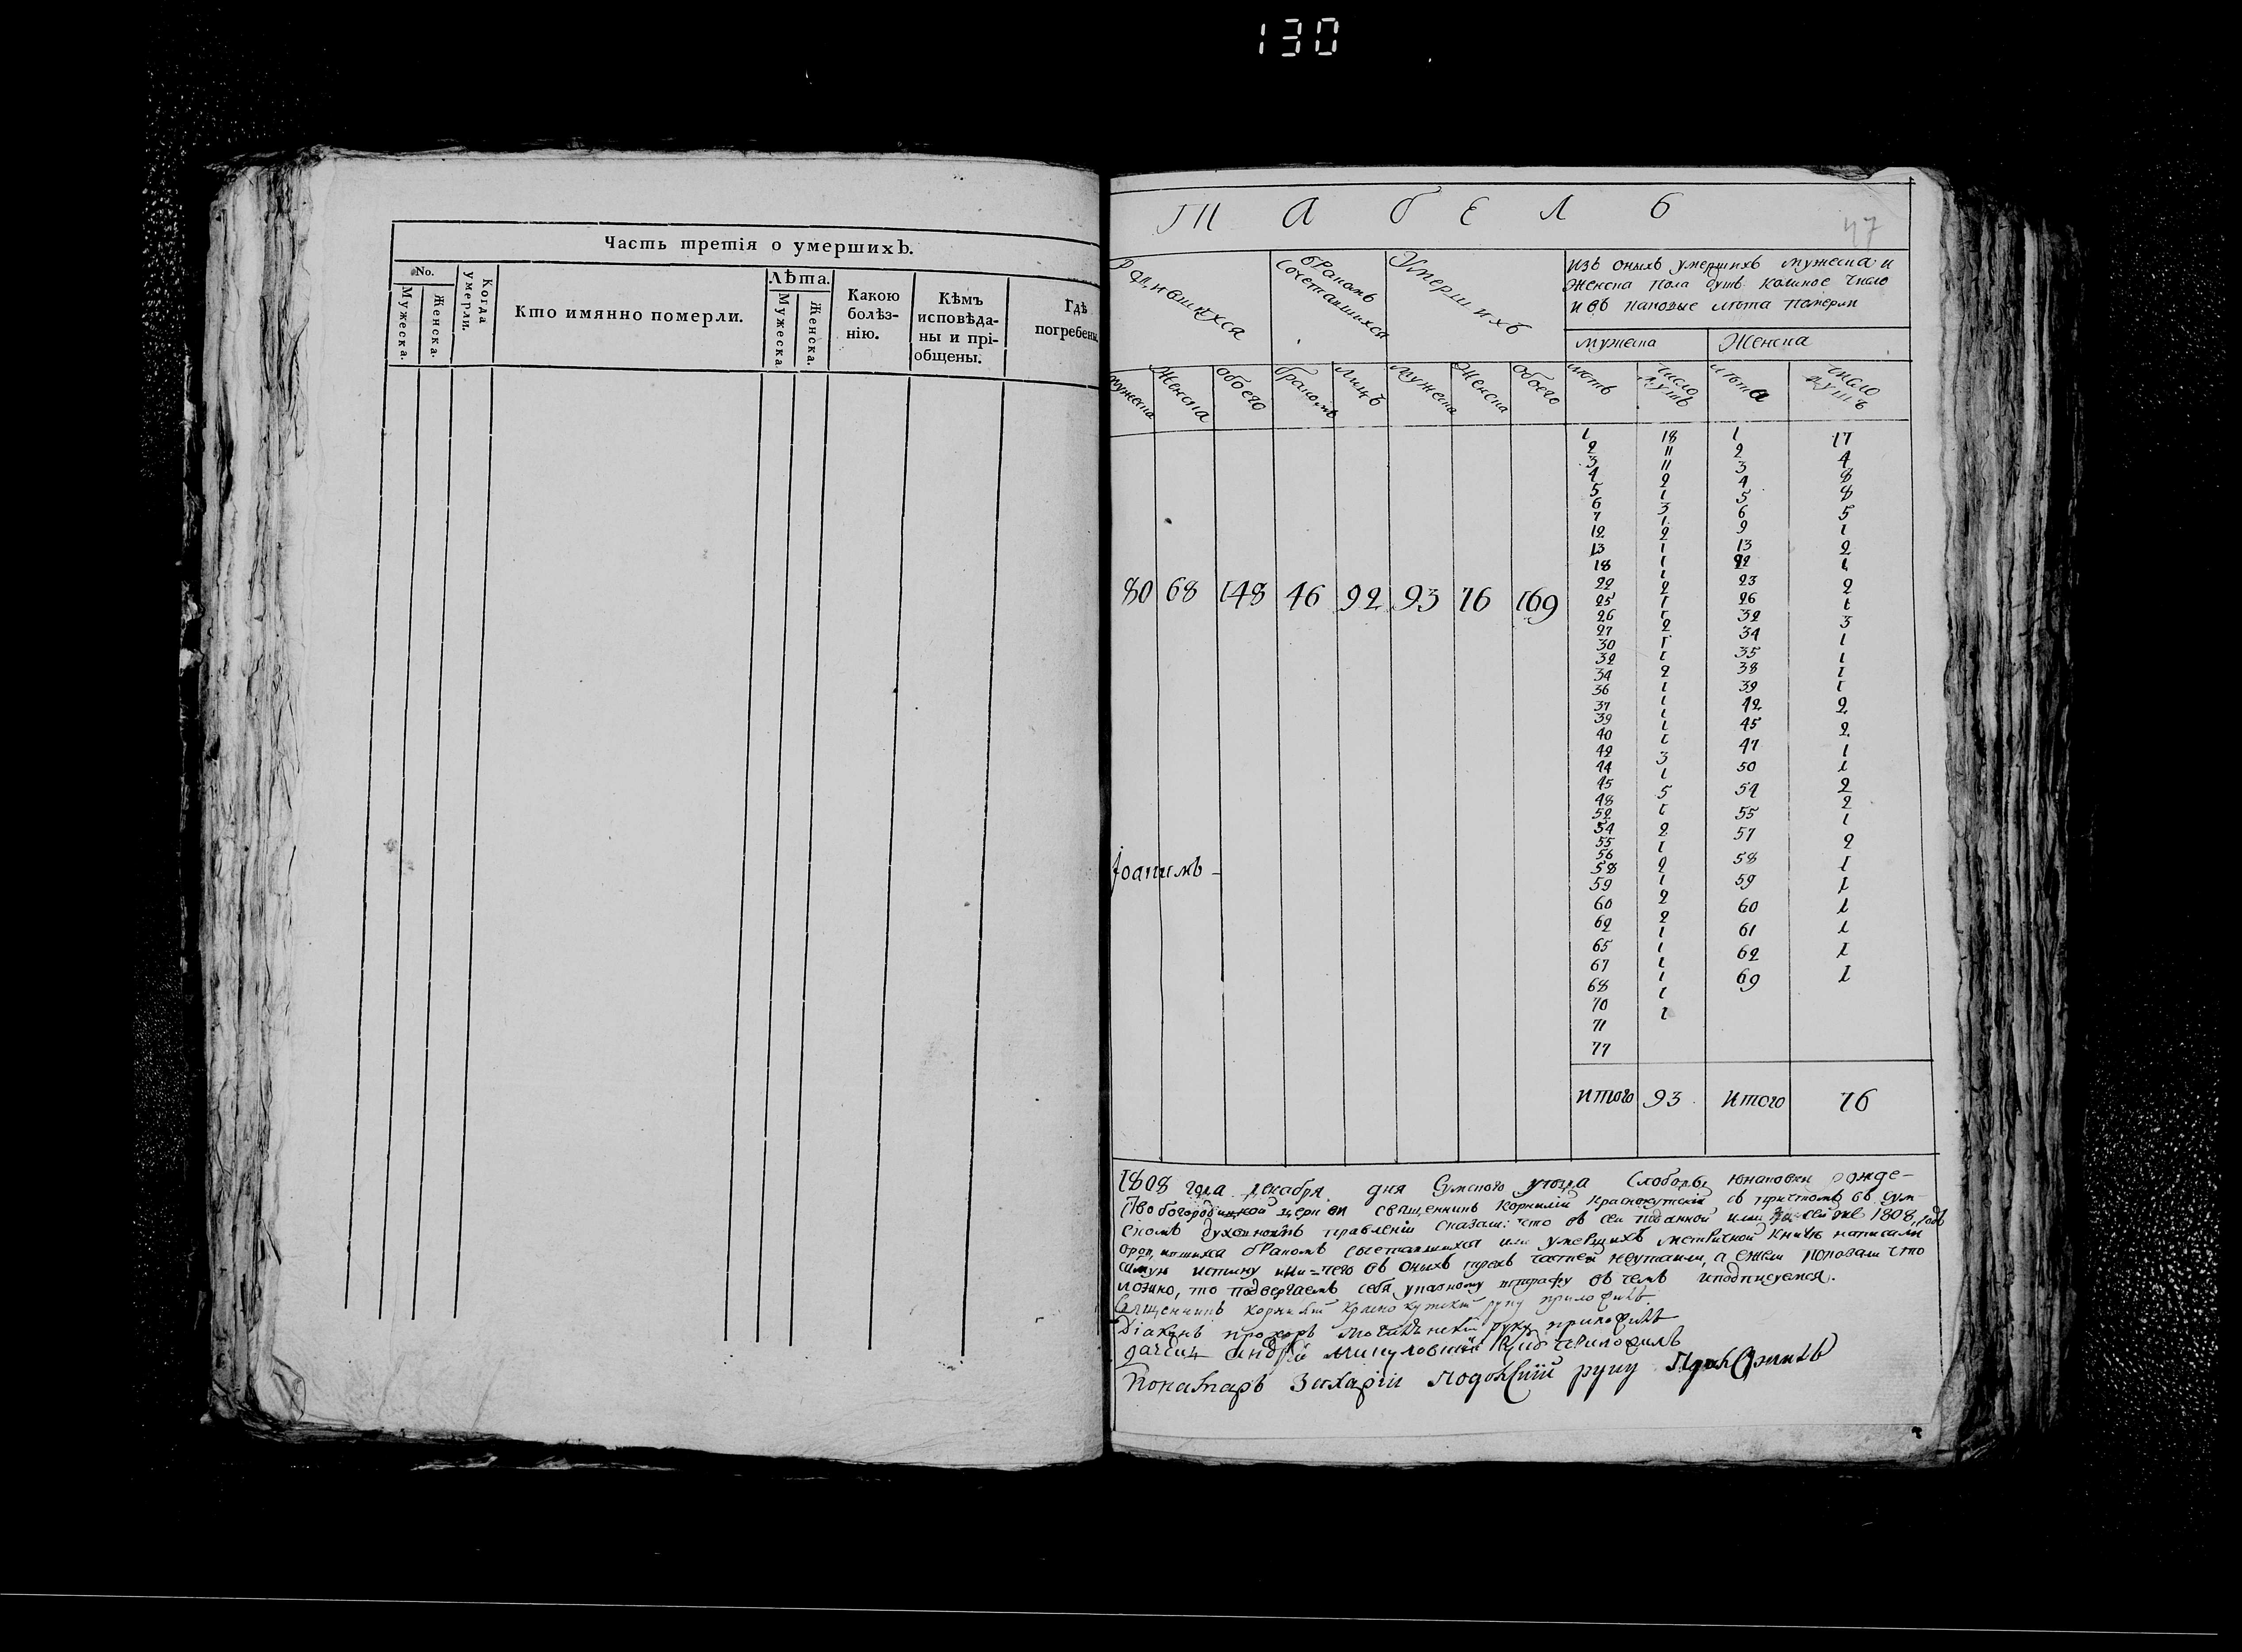 130
Часть третія о умершихъ.
No.
Мужеска.
Женска.
Когда умерли.
Кто имянно померли.
Лѣта.
Мужеска
Женска.
Какою болѣз-
нію.
Кѣмъ
исповѣда-
ны и прі-
общены.
Гдѣ
погребены
Табель
47
Бракомъ
Сочетавшихся
Умершихъ
Изъ оныхъ умершихъ мужеска и
Женска пола душъ коликое число
и въ каковые лѣта померли
мужеска Женска
мужеска Женска обоего браковъ лицъ мужеска Женска обоего лѣтъ число душъ лѣта число душъ
80 68 148 46 92 93 76 169
1 18 1 17
2 11 2 4
3 11 3 8
4 2 4 8
5 1 5 5
6 3 6 1
7 1 9 2
12 2 13 1
13 1 22 2
18 1 23 1
22 1 26 3
25 2 32 1
26 1 34 1
27 1 35 1
30 2 38 1
32 1 39 2
34 1 42 2
36 2 45 1
37 1 47 1
39 1 50 2
40 1 54 2
42 1 55 1
44 1 57 2
45 3 58 1
48 1 59 1
52 5 60 1
54 1 61 1
55 2 62 1
56 1 69 1
58 2
59 1
60 2
62 2
65 1
67 1
68 1
70 1
71 1
77 1
Іоакимъ
Итого 93 Итого 76
1808 года декабря дня Сумского уезда Слободы Юнаковки рожде-
ство богородицкой церкви священникъ Корнилій Краснокутскій съ причтомъ въ сум-
скомъ духовномъ правленіи сказали: что въ сей поданной 1808 годъ
бракомъ сочетавшихся или умершихъ метричной книгѣ написали
самую истину въ оныхъ трехъ частей неутаили, а ежели показали что
ложно, то подвергаемъ себя указному штрафу въ чемъ и подписуемся.
Священникъ Корнилій Краснокутскій руку приложилъ
Діаконъ прохоръ руку приложилъ
дячокъ андрей приложилъ
Понамарь Захарій руку приложилъ